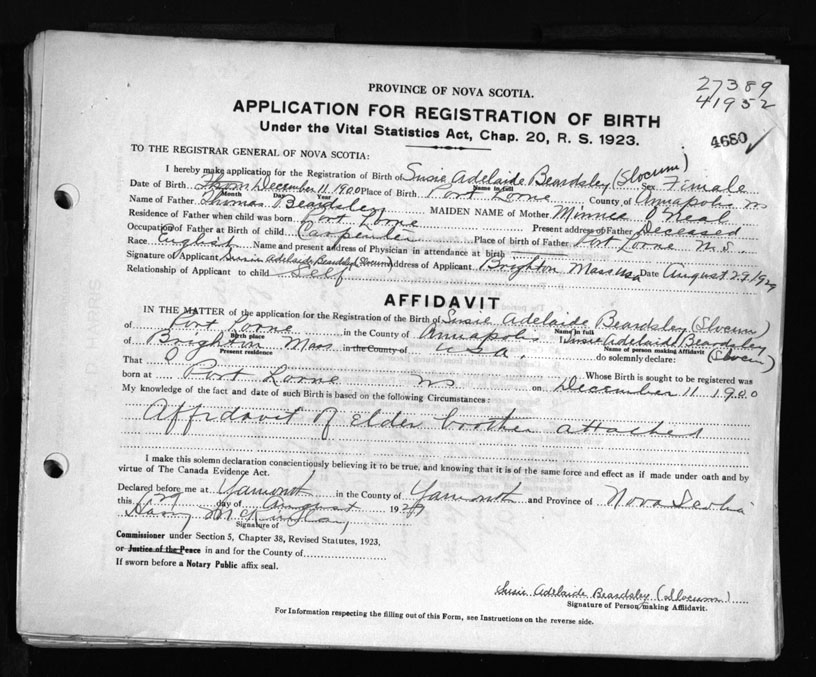 27389
41952
4680 ✓
PROVINCE OF NOVA SCOTIA.
APPLICATION FOR REGISTRATION OF BIRTH
Under the Vital Statistics Act, Chap. 20, R. S. 1923.
TO THE REGISTRAR GENERAL OF NOVA SCOTIA:
I hereby make application for the Registration of Birth of Susie Adelaide Beardsley (Slocum) Sex Female
Name in full
Date of Birth December 11 1900 Place of Birth Port Lorne County of Annapolis NS
Month Day Year
Name of Father Thomas Beardsley MAIDEN NAME of Mother Minnie O'Neal
Residence of Father when child was born Port Lorne Present address of Father Deceased
Occupation of Father at Birth of child Carpenter Place of birth of Father Port Lorne N.S.
Race English Name and present address of Physician in attendance at birth
Signature of Applicant Susie Adelaide Beardsley (Slocum) Address of Applicant Brighton Mass USA Date August 29 1929
Relationship of Applicant to child Self
AFFIDAVIT
IN THE MATTER of the application for the Registration of the Birth of Susie Adelaide Beardsley (Slocum)
Name in full
of Port Lorne in the County of Annapolis I Susie Adelaide Beardsley (Slocum)
Birth place Name of person making Affidavit
of Brighton Mass in the County of USA. do solemnly declare:
Present residence
That I Whose Birth is sought to be registered was
born at Port Lorne NS on December 11 1900
My knowledge of the fact and date of such Birth is based on the following Circumstances:
Affidavit of Elder brother attached
I make this solemn declaration conscientiously believing it to be true, and knowing that it is of the same force and effect as if made under oath and by
virtue of The Canada Evidence Act.
Declared before me at Yarmouth in the County of Yarmouth and Province of Nova Scotia
this 29 day of August 1929
Harry
Signature of
Commissioner under Section 5, Chapter 38, Revised Statutes, 1923,
or Justice of the Peace in and for the County of
If sworn before a Notary Public affix seal.
Susie Adelaide Beardsley (Slocum)
Signature of Person making Affidavit.
For Information respecting the filling out of this Form, see Instructions on the reverse side.